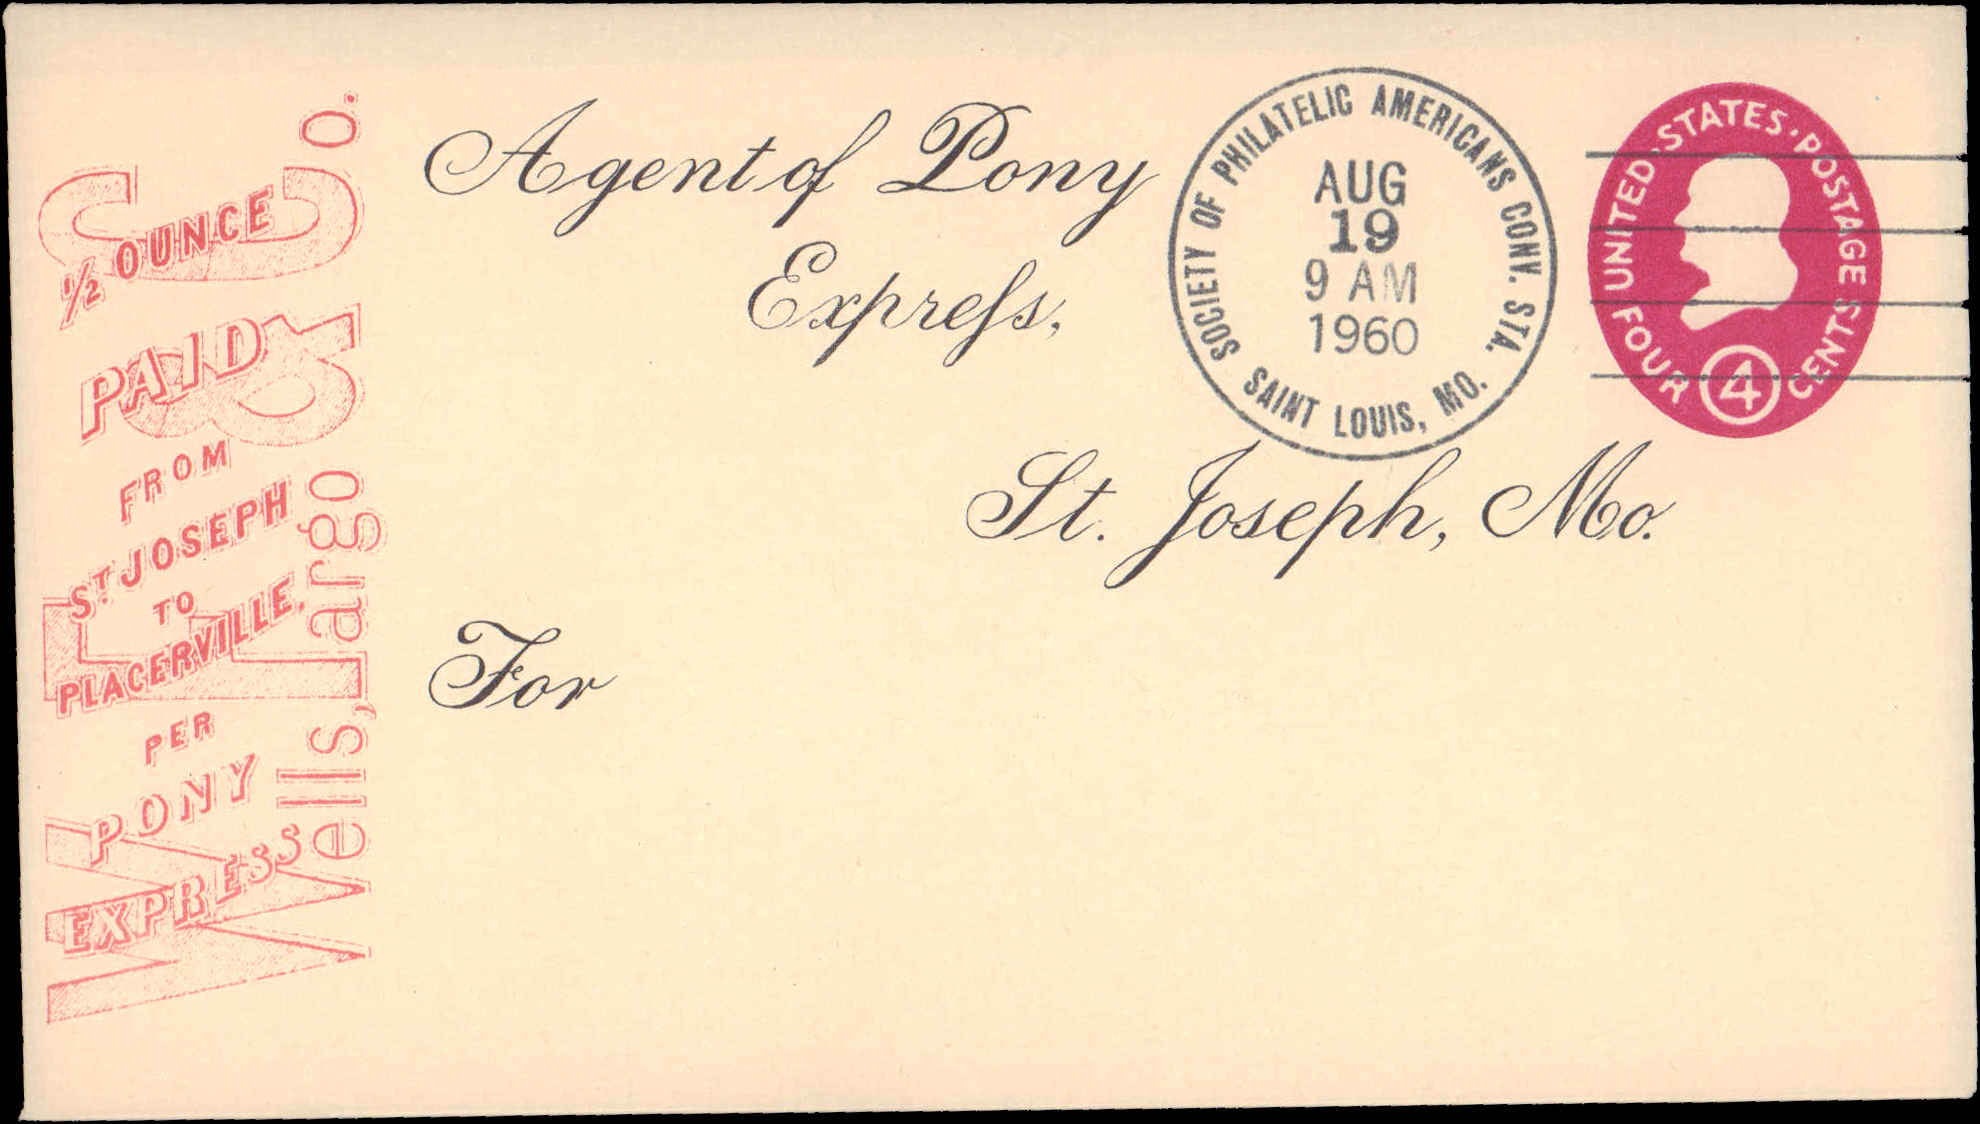 Wells, Fargo & Co.
½ OUNCE
PAID
FROM
ST JOSEPH
TO
PLACERVILLE.
PER
PONY
EXPRESS
Agent of Pony
Express,
St. Joseph, Mo.
For
SOCIETY OF PHILATELIC AMERICANS CONV. STA.
AUG
19
9 AM
1960
SAINT LOUIS, MO.
UNITED·STATES·POSTAGE
FOUR 4 CENTS